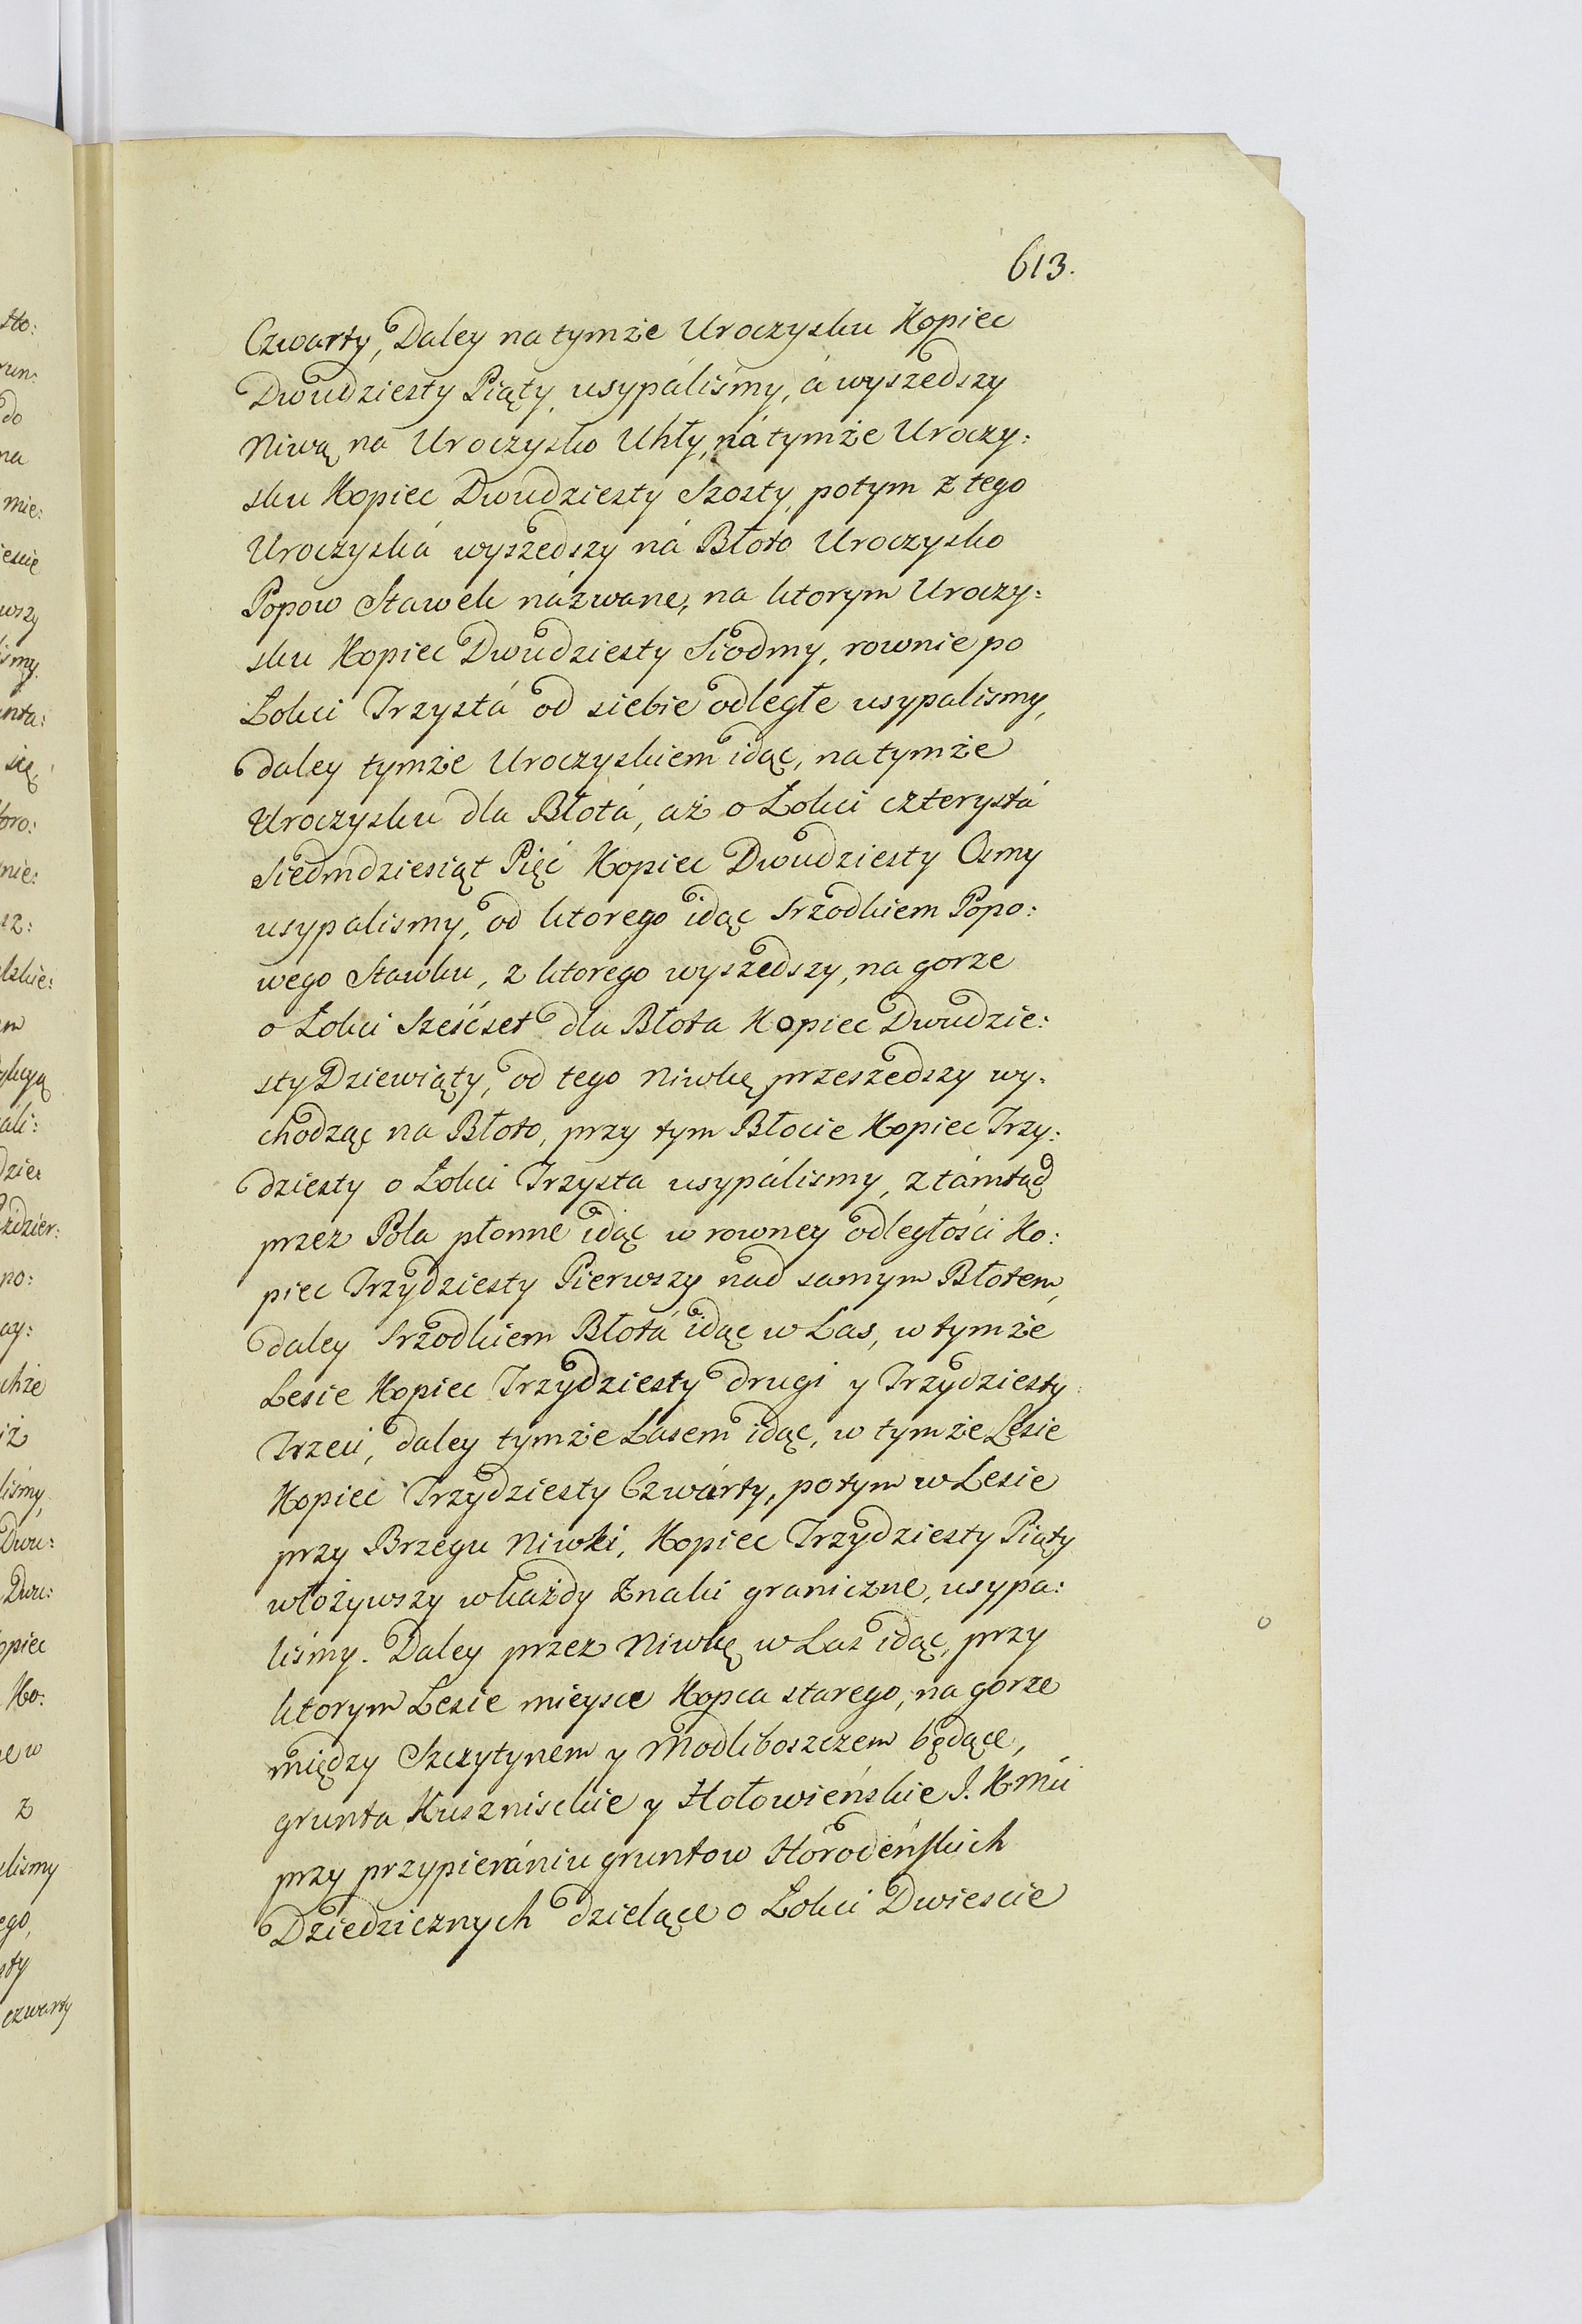 613.
Czwarty, Daley na tymże Uroczysku Kopiec
Dwudziesty Piąty usypáliśmy, á wyszedszy
Niwą na Uroczysko Uhły, ná tymże Uroczy:
sku Kopiec Dwudziesty Szosty, potym z tego
Uroczyská wyszedszy ná Błoto Uroczysko
Popow Stawek názwane, na ktorym Uroczy:
sku Kopiec Dwudziesty Siodmy, rownie po
Łokci Trzystá od siebie odległe usypalismy,
daley tymże Uroczyskiem idąc, na tymże
Uroczysku dla Błotá, aż o Łokci czterystá
Siedmdziesiąt Pięć Kopiec Dwudziesty Osmy
usypalismy, od ktorego idąc Srzodkiem Popo:
wego Stawku, z ktorego wyszedszy, na gorze
o Łokci Sześćset dla Błota Kopiec Dwudzie:
sty Dziewiąty, od tego Niwkę przeszedszy wy:
chodząc na Błoto, przy tym Błocie Kopiec Trzy:
dziesty o Łokci Trzysta usypálismy, ztámtąd
przez Pola płonne idąc w rowney odległości Ko:
piec Trzydziesty Pierwszy nad samym Błotem,
daley Srzodkiem Błotá idąc w Las, w tymże
Lesie Kopiec Trzydziesty drugi y Trzydziesty
Trzeci, daley tymże Lasem idąc, w tymże Lesie
Kopiec Trzydziesty Czwárty, potym w Lesie
przy Brzegu Niwki, Kopiec Trzydziesty Piąty
włożywszy w każdy Znaki graniczne, usypa:
liśmy. Daley przez Niwkę w Las idąc, przy
ktorym Lesie mieysce Kopca starego, na gorze
między Szczytynem y Modliboszczem będące,
grunta Kusznisckie y Hołowieńskie J. K mci
przy przypierániu gruntow Horodeńskich
Dziedzicznych dzielące o Łokci Dwiescie